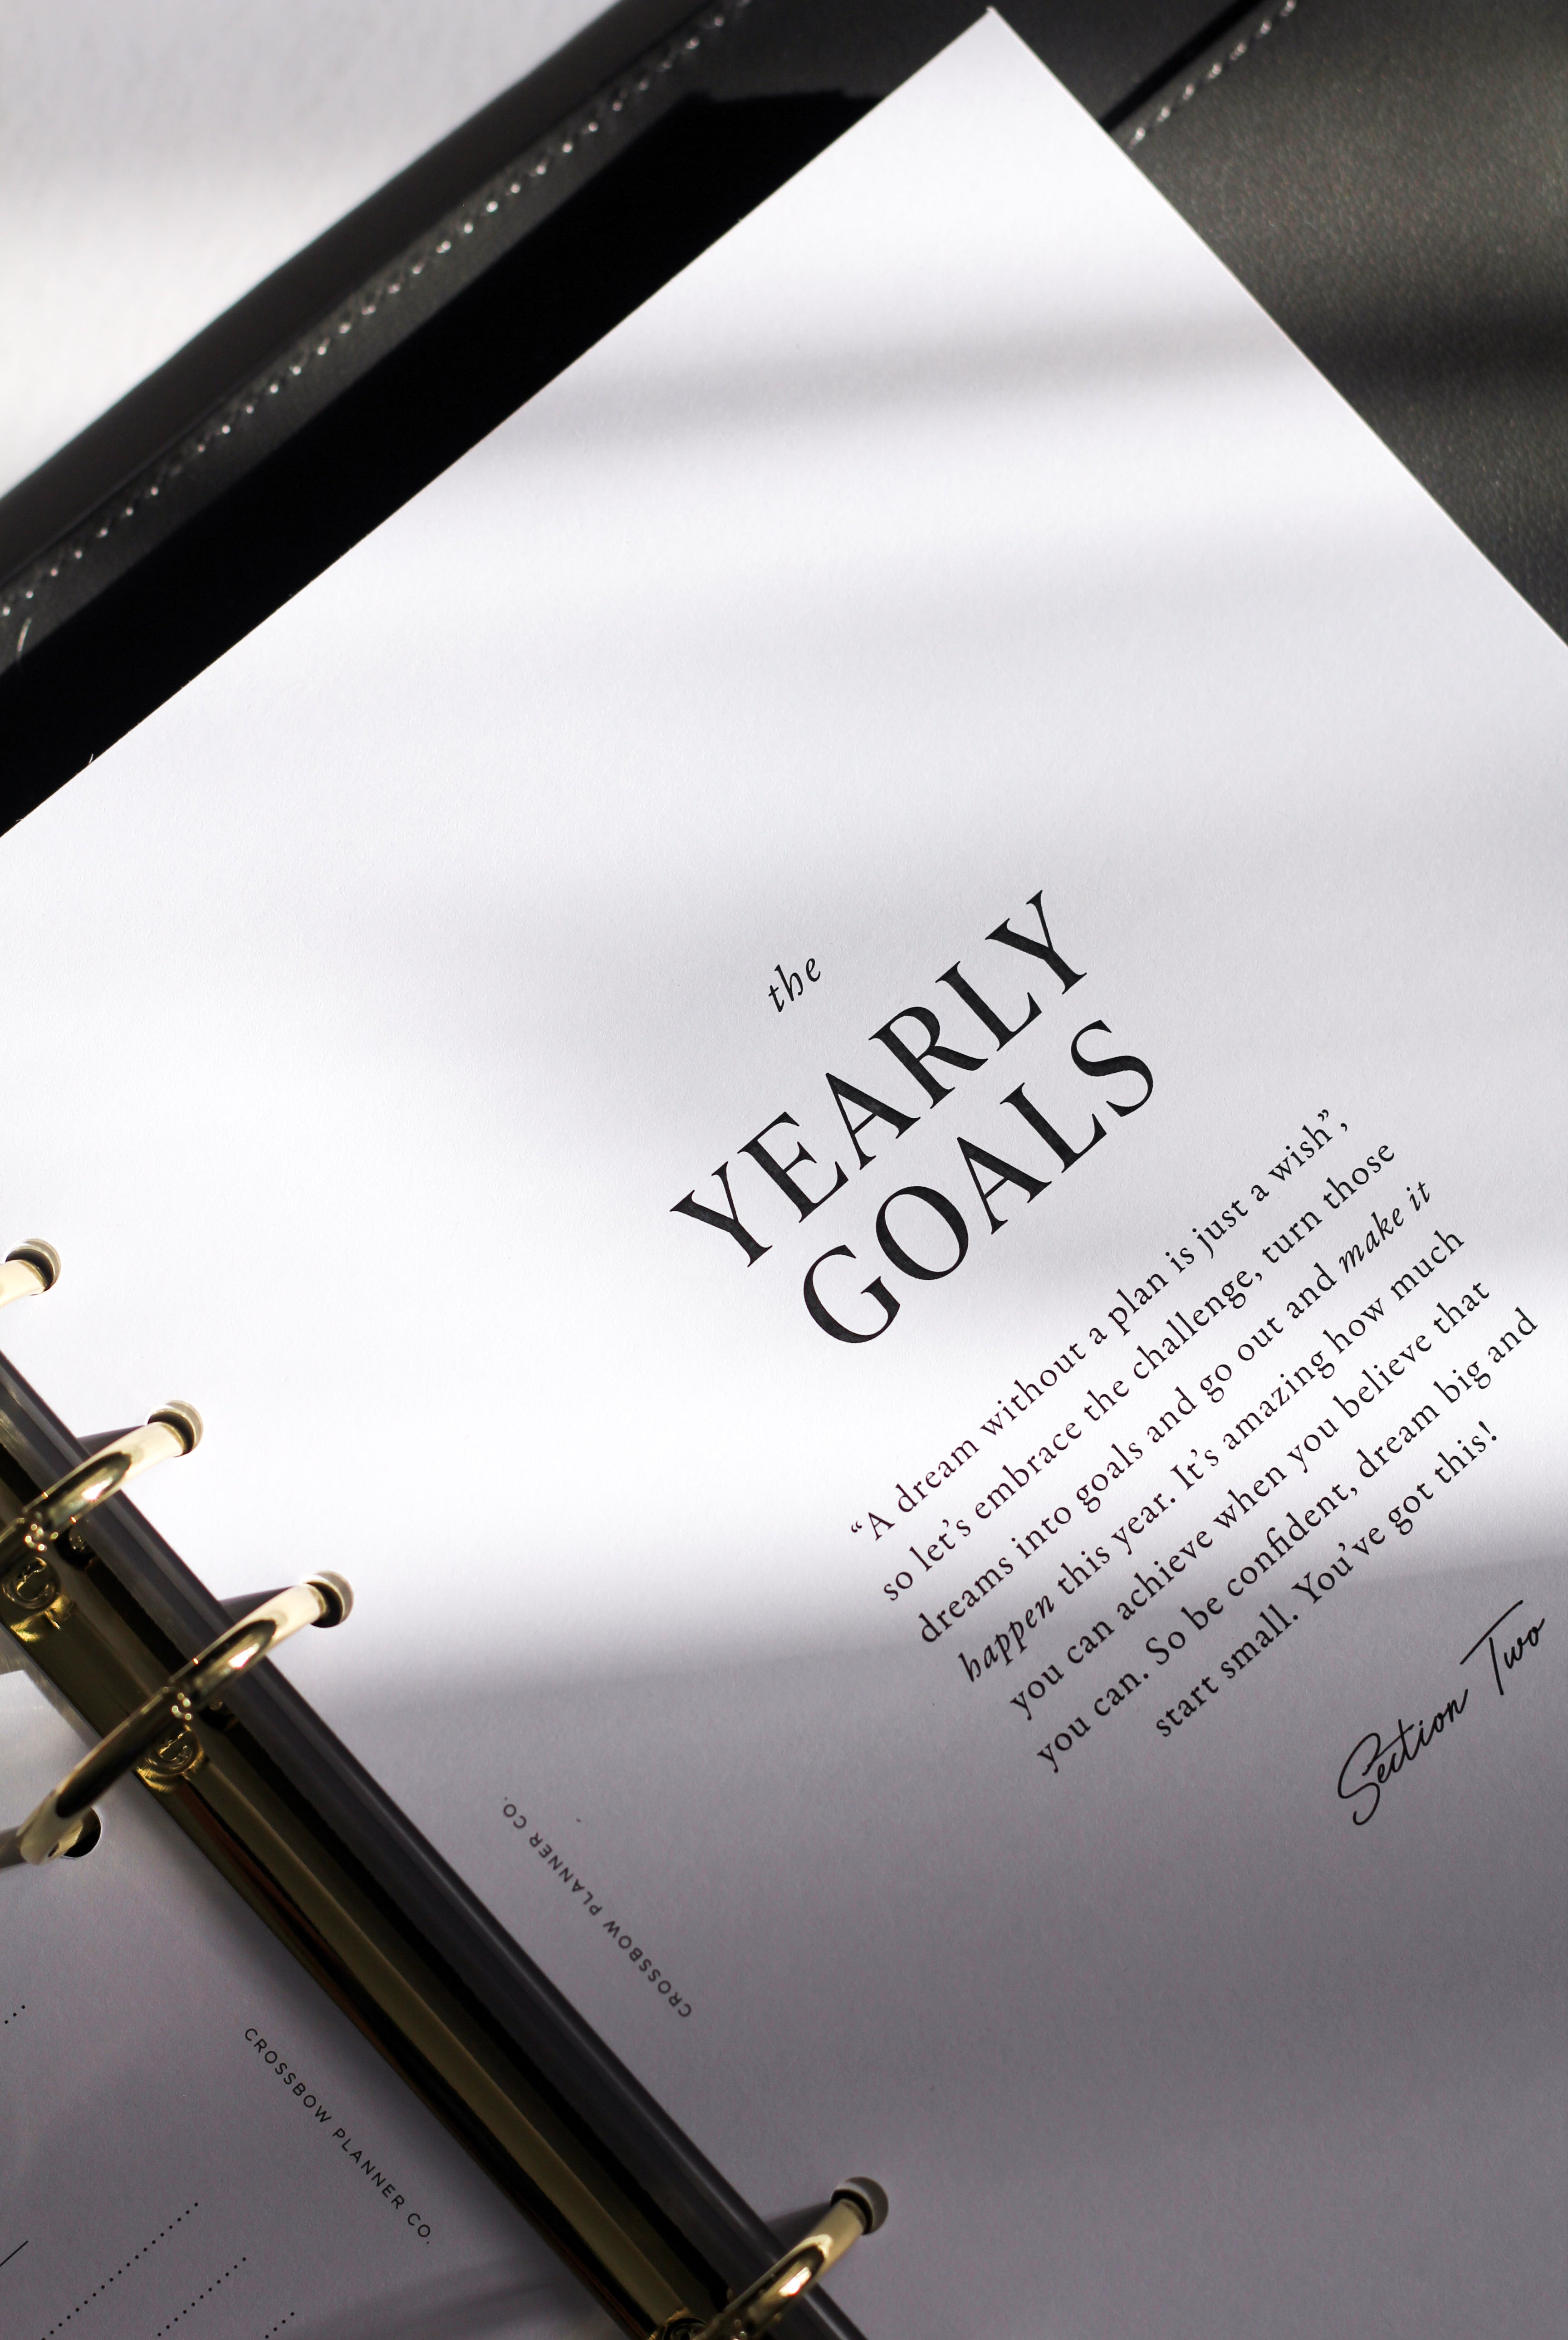 the
YEARLY
GOALS
“A dream without a plan is just a wish”,
so let’s embrace the challenge, turn those
dreams into goals and go out and make it
happen this year. It’s amazing how much
you can achieve when you believe that
you can. So be confident, dream big and
start small. You’ve got this!
Section Two
CROSSBOW PLANNER CO.
CROSSBOW PLANNER CO.